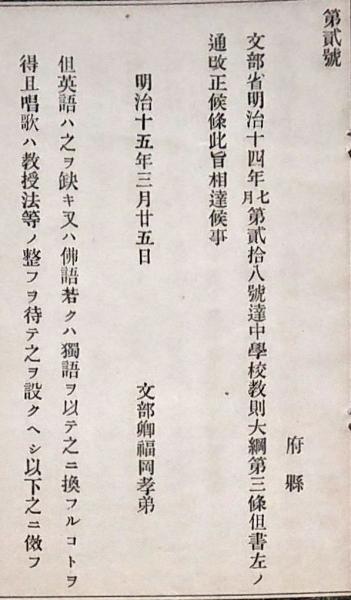 第貳號
府縣
文部省明治十四年七月第貳拾八號達中學校敎則大綱第三條但書左ノ
通改正候條此旨相達候事
明治十五年三月廿五日　文部卿福岡孝弟
但英語ハ之ヲ缺キ又ハ佛語若クハ獨語ヲ以テ之ニ換フルコトヲ
得且唱歌ハ敎授法等ノ整フヲ待テ之ヲ設クヘシ以下之ニ倣フ